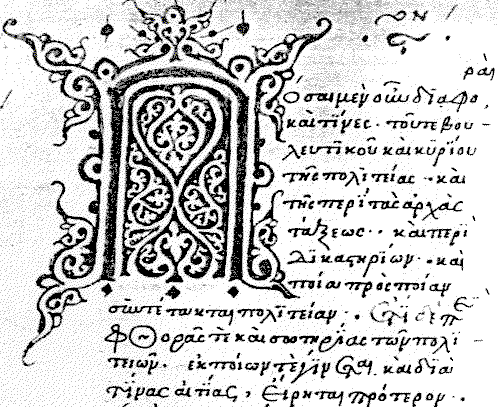 ραὶ
Πόσαι μὲν οὖν διαφο
καὶ τίνες · τοῦ τε βου
λευτικοῦ καὶ κυρίου
τῆς πολιτείας · καὶ
τῆς περὶ τὰς ἀρχὰς
τάξεως · καὶ περὶ
δικαστηρίων · καὶ
ποία πρὸς ποίαν
συντέτακται πολιτείαν · ἔτι δὲ περὶ
φθορᾶς τε καὶ σωτηρίας τῶν πολι
τειῶν · ἐκ ποίων τε γίνεται καὶ διὰ
τίνας αἰτίας, εἴρηται πρότερον ·